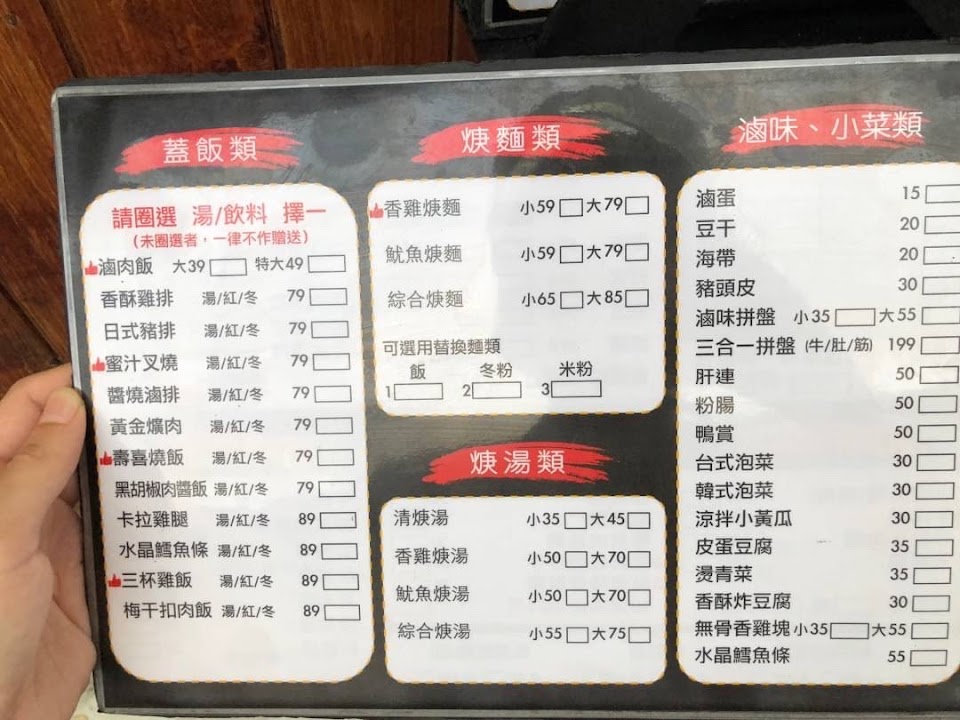 蓋飯類
請圈選 湯/飲料 擇一
(未圈選者,一律不作贈送)
滷肉飯 大39 特大49
香酥雞排 湯/紅/冬 79
日式豬排 湯/紅/冬 79
蜜汁叉燒 湯/紅/冬 79
醬燒滷排 湯/紅/冬 79
黃金爌肉 湯/紅/冬 79
壽喜燒飯 湯/紅/冬 79
黑胡椒肉醬飯 湯/紅/冬 79
卡拉雞腿 湯/紅/冬 89
水晶鱈魚條 湯/紅/冬 89
三杯雞飯 湯/紅/冬 89
梅干扣肉飯 湯/紅/冬 89
焿麵類
香雞焿麵 小59 大79
魷魚焿麵 小59 大79
綜合焿麵 小65 大85
可選用替換麵類
飯 冬粉 米粉
1 2 3
焿湯類
清焿湯 小35 大45
香雞焿湯 小50 大70
魷魚焿湯 小50 大70
綜合焿湯 小55 大75
滷味、小菜類
滷蛋 15
豆干 20
海帶 20
豬頭皮 30
滷味拼盤 小35 大55
三合一拼盤 (牛/肚/筋) 199
肝連 50
粉腸 50
鴨賞 50
台式泡菜 30
韓式泡菜 30
涼拌小黃瓜 30
皮蛋豆腐 35
燙青菜 35
香酥炸豆腐 30
無骨香雞塊 小35 大55
水晶鱈魚條 55